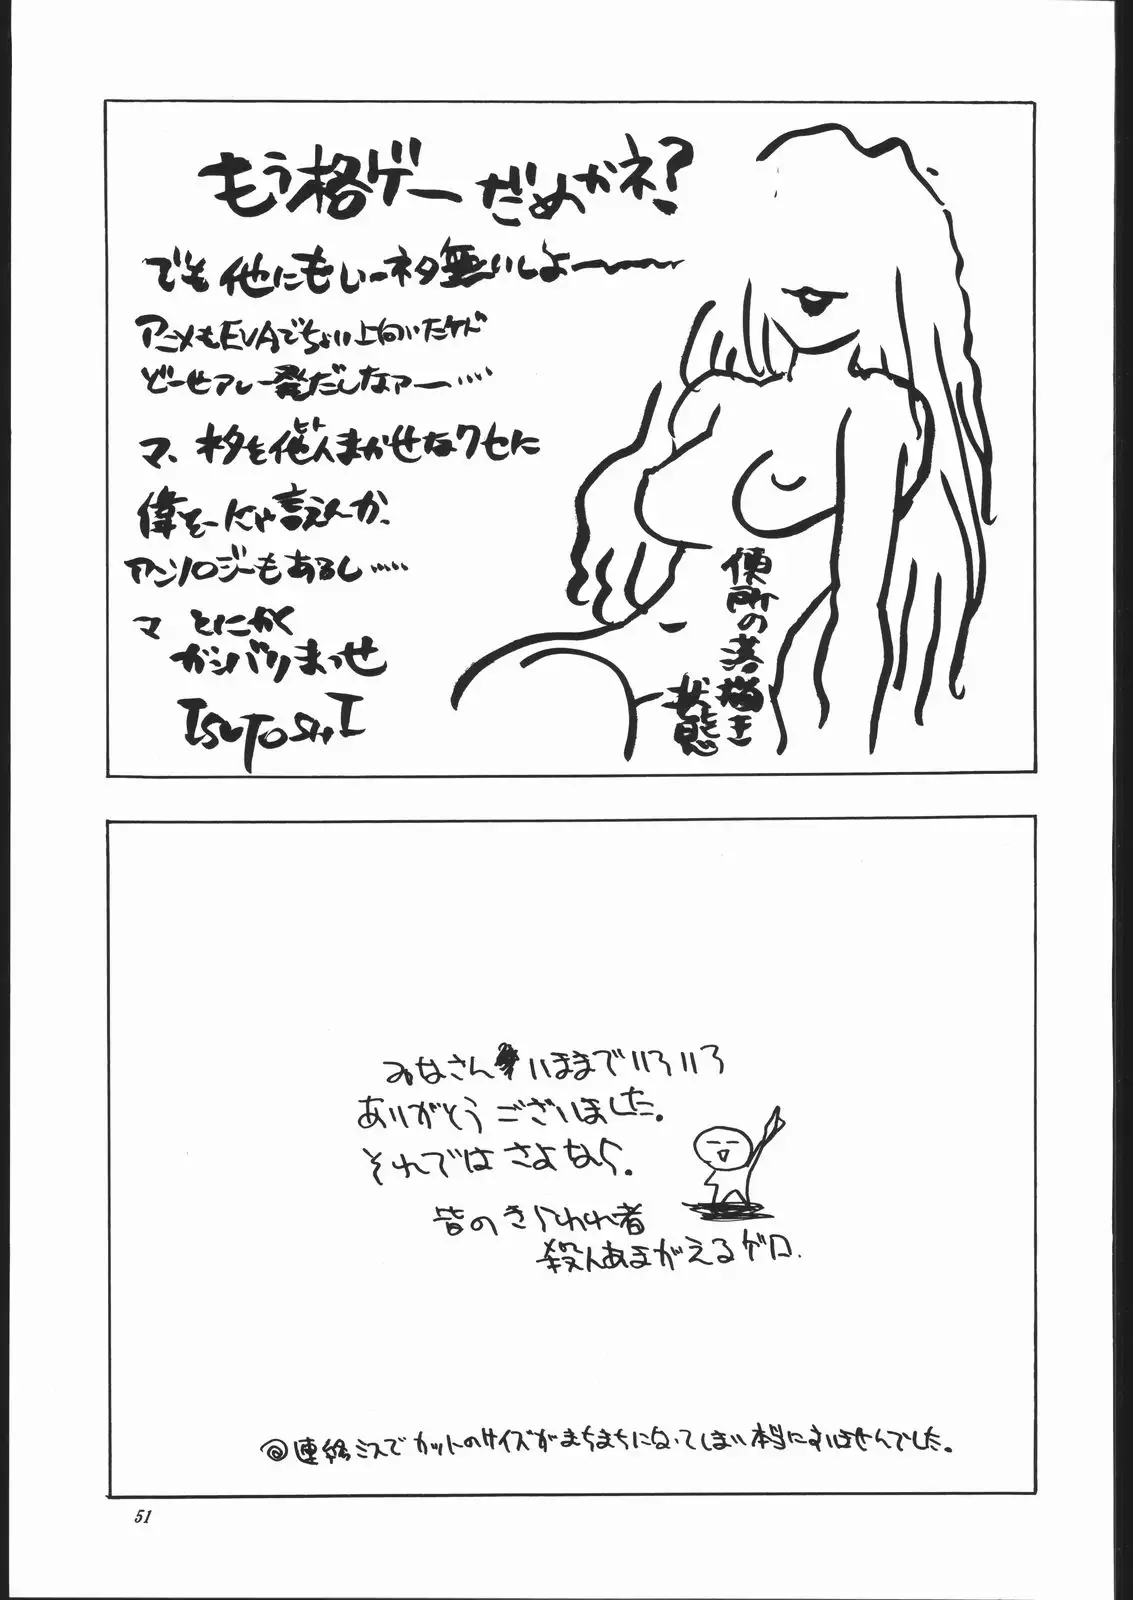 もう格ゲーだめかネ?
でも他にもしーネタ無いしよー〜〜
アニメもEVAでちょい上向いたケド
どーせアレ一発だしなァー‥‥
マ、ネタを他人まかせなクセに
ヒト
偉そーにゃ言えんが、
アンソロジーもあるし‥‥‥
マ とにかく
ガンバりまっせ
ISUTOSHI
便所の落描き
状態
みなさん いままでいろいろ
ありがとうございました。
それではさよなら。
皆のきらわれ者
殺人あまがえるゲロ.
@連絡ミスでカットのサイズがまちまちになってしまい本当にすいませんでした。
51